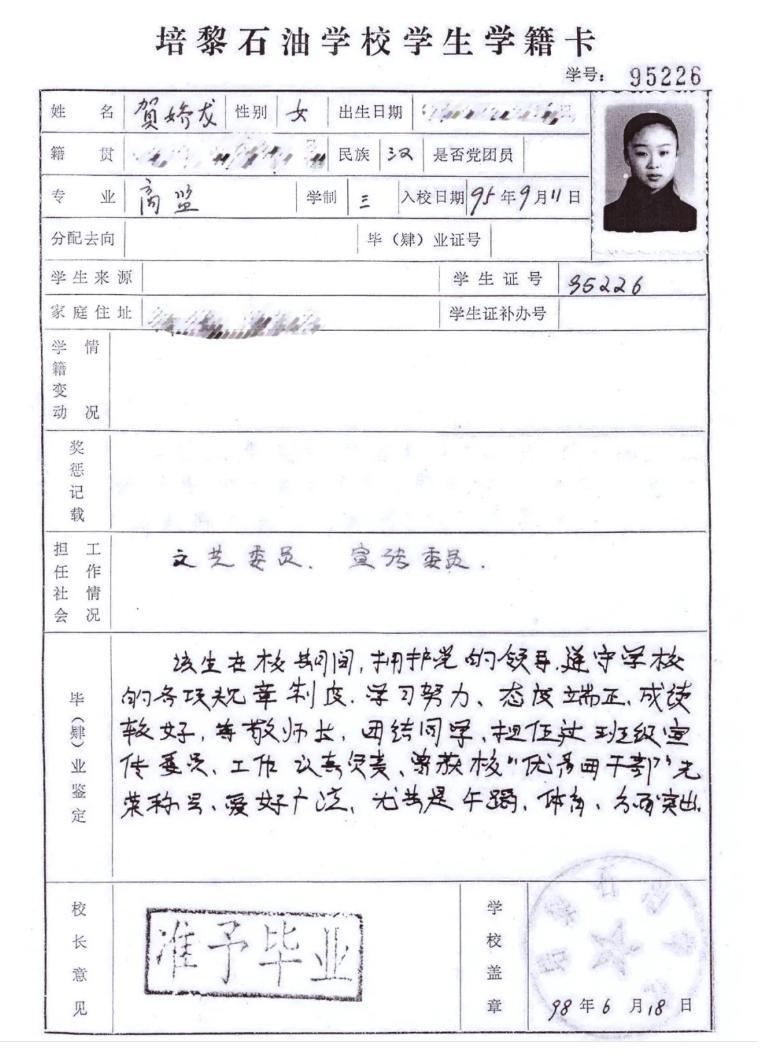 培黎石油学校学生学籍卡
学号: 95226
姓名 賀娇龙 性别 女 出生日期
籍贯 民族 汉 是否党团员
专业 商监 学制 三 入校日期 95年9月11日
分配去向 毕（肄）业证号
学生来源 学生证号 95226
家庭住址 学生证补办号
学籍变动情况
奖惩记载
担任社会工作情况 文艺委员、宣传委员.
毕（肄）业鉴定
该生在校其间,拥护党的领导,遵守学校
的各项规章制度.学习努力、态度端正,成绩
较好,尊敬师长,团结同学,担任过班级宣
传委员、工作认真负责、曾获校"优秀团干部"光
荣称号、爱好广泛,尤其是午蹈、体育、方面突出.
校长意见 准予毕业
学校盖章 98年6月18日